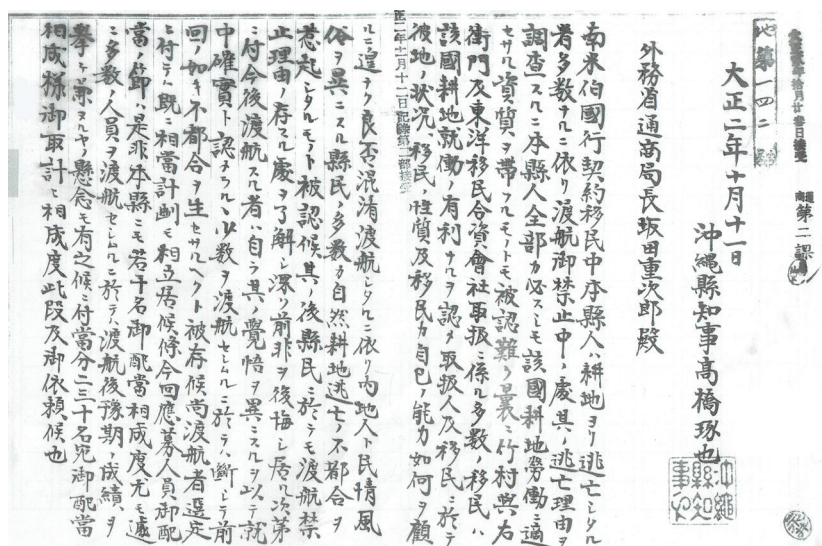 地第一四二號
大正二年十月廿壱日接受
通商 第二課
大正二年十月十一日
沖繩縣知事髙橋琢也
沖繩縣知事之印
外務省通商局長坂田重次郎殿
南米伯國行契約移民中本縣人ハ耕地ヨリ逃亡シタル
者多数ナルニ依リ渡航御禁止中ノ處其ノ逃亡理由ヲ
調査スルニ本縣人全部カ必スシモ該國耕地勞働ニ適
セサル資質ヲ帯フルモノトモ被認難ク曩ニ竹村與右
衛門及東洋移民合資會社取扱ニ係ル多数ノ移民ハ
該國耕地就働ノ有利ナルヲ認メ取扱人及移民ニ於テ
彼地ノ状況、移民ノ性質及移民カ自己ノ能力如何ヲ顧
正二年十一月十二日記録第二部接受
ルニ遑ナク良否混淆渡航シタルニ依リ内地人ト民情風
俗ヲ異ニスル縣民ノ多数カ自然耕地逃亡ノ不都合ヲ
惹起シタルモノト被認候其ノ後縣民ニ於テモ渡航禁
止理由ノ存スル處ヲ了解シ深ク前非ヲ後悔シ居ル次第
ニ付今後渡航スル者ハ自ラ其ノ覺悟ヲ異ニスルヲ以テ就
中確實ト認メラルヽ少数ヲ渡航セシムルニ於テハ斷シテ前
回ノ如キ不都合ヲ生セサルヘクト被存候尚渡航者選定
ニ付テハ既ニ相當計画モ相立居候條今回應募人員御配
當ノ節ハ是非本縣ニモ若干名御配當相成度尤モ遽
ニ多数ノ人員ヲ渡航セシムルニ於テハ渡航後豫期ノ成績ヲ
擧ケ兼ヌルヤノ懸念モ有之候ニ付當分二三十名宛御配當
相成様御取計ヒ相成度此段及御依頼候也